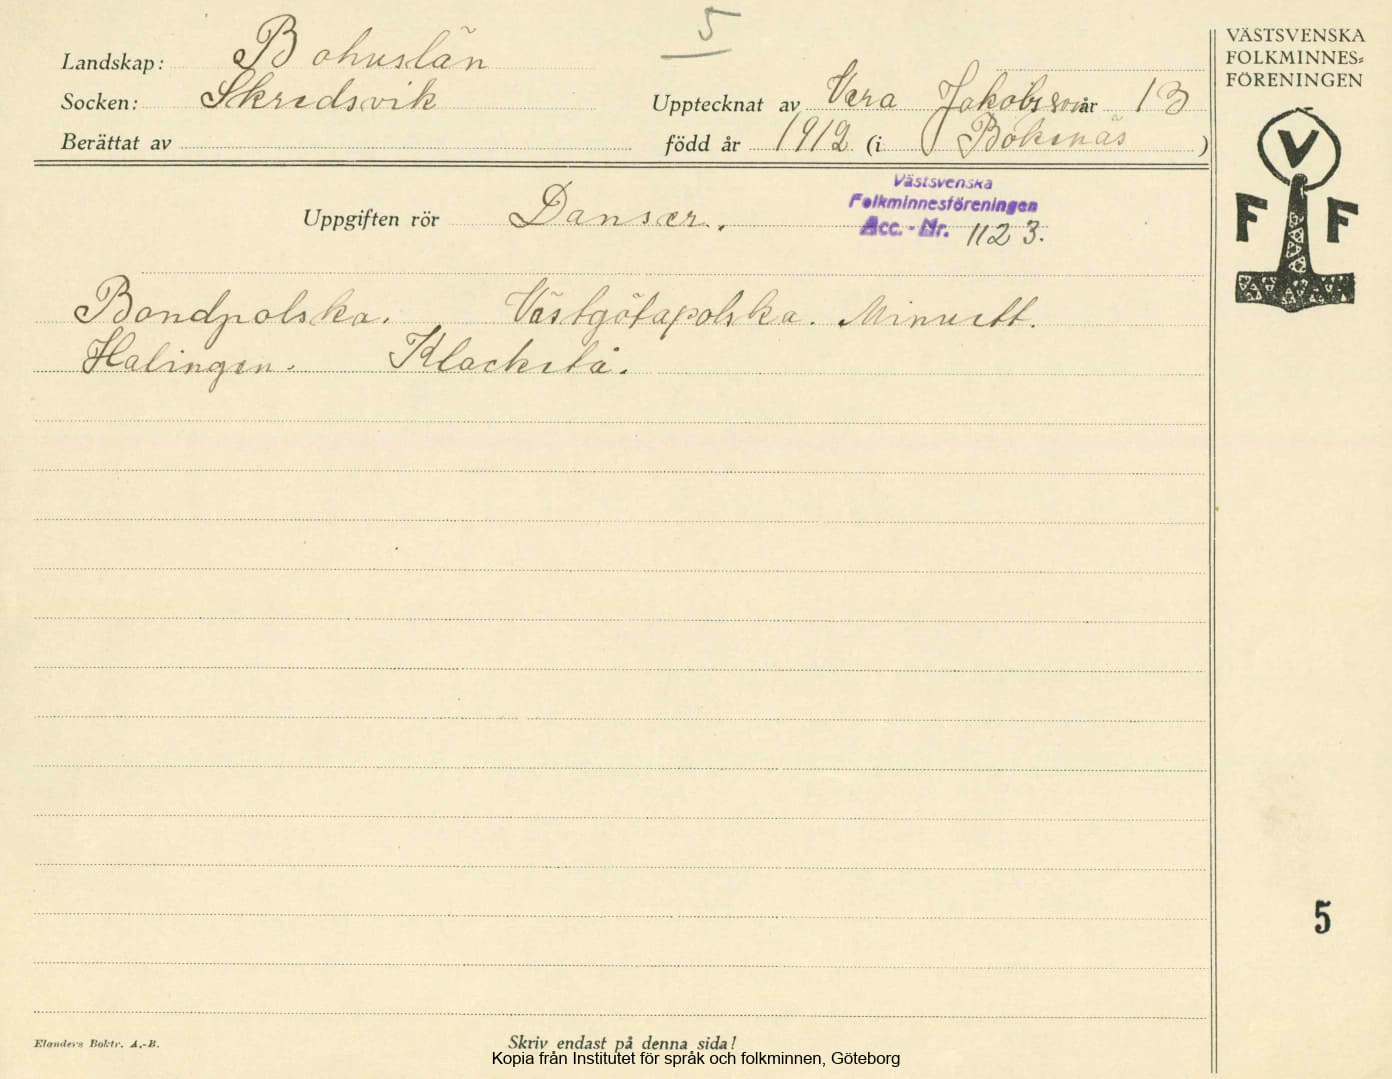 5
Landskap: Bohuslän
Socken: Skredsvik
Upptecknat av Vera Jakobsson år 13
Berättat av
född år 1912 (i Bokenäs )
Uppgiften rör Danser.
Västsvenska
Folkminnesföreningen
Acc. - Nr. 1123.
Bondpolska. Västgötapolska. Minuett.
Halingen. Klacketå.
VÄSTSVENSKA
FOLKMINNES=
FÖRENINGEN
V
F F
5
Elanders Boktr. A.-B.
Skriv endast på denna sida!
Kopia från Institutet för språk och folkminnen, Göteborg